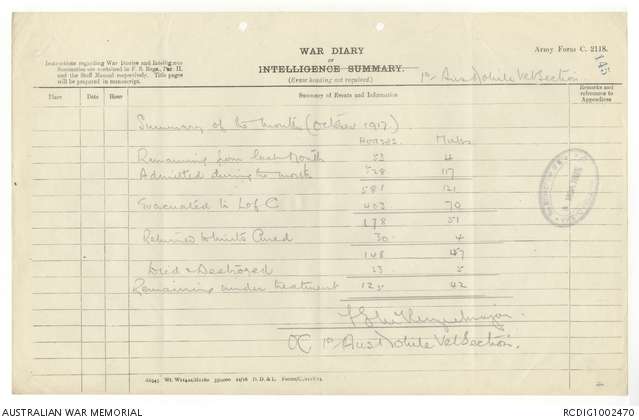 WAR DIARY
Army Form C. 2118.
OF
INTELLIGENCE SUMMARY.
(Erase heading not required.)
145
Instructions regarding War Diaries and Intelligence
Summaries are contained in F. S. Regs., Part II.
and the Staff Manual respectively. Title pages
will be prepared in manuscript.
1st Aus Mobile Vet Section
Place Date Hour Summary of Events and Information Remarks and references to Appendices
Summary of the Month (October 1917)
Horses. Mules
Remaining from last Month 53 4
Admitted during the month 528 117
581 121
Evacuated to L of C 403 70
178 51
Returned to units Cured 30 4
148 47
Died & Destroyed 23 5
Remaining under treatment 125 42
Major.
OC 1st Aus Mobile Vet Section.
AUSTRALIAN WAR MEMORIAL
RCDIG1002470